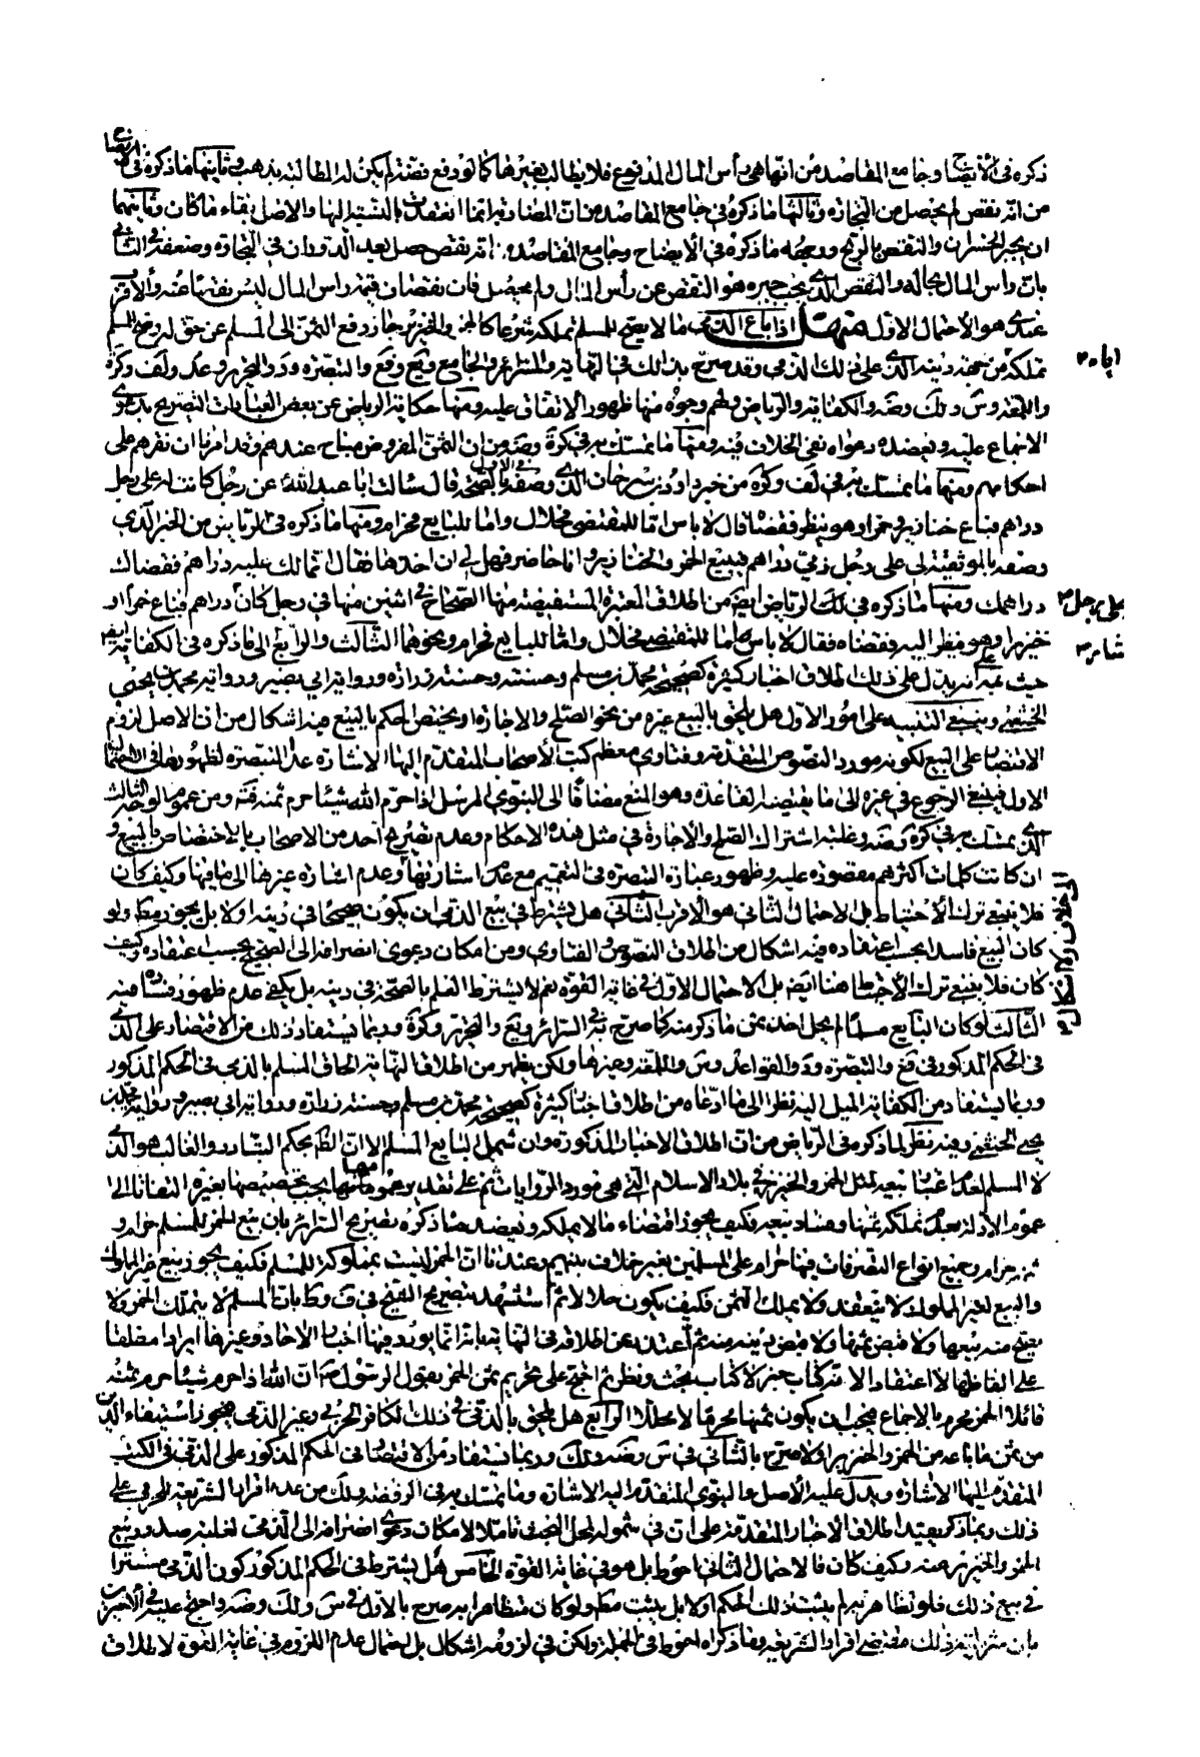 ذكره فى الايضاح وجامع المقاصد من انها هى رأس المال المدفوع فلا يطالب بغيرها كما لو دفع فضة لم يكن له المطالبة بذهب وثانيها ما ذكره فى
من انه نقص لم يحصل من التجارة وثالثها ما ذكره فى جامع المقاصد من ان المضاربة انما انعقدت بالنسبة اليها والاصل بقاء ما كان وثانيهما
ان يجبر الخسران والنقص بالربح ووجهه ما ذكره فى الايضاح وجامع المقاصد من انه نقص حصل بعد الدوران فى التجارة وضعفه فى الثانى
بان رأس المال بحاله والنقص الذى يجب جبره هو النقص عن رأس المال ولم يحصل فان نقصان قيمة رأس المال ليس نقصا منه والأقرب
عندى هو الاحتمال الاول منهل اذا باع الذمى ما لا يصح للمسلم تملكه شرعا كالخمر والخنزير جاز دفع الثمن الى المسلم عن حق له ويصح للمسلم
تملكه من جهة دينه الذى على ذلك الذمى وقد صرح بذلك فى النهاية والسرائر والجامع ويع وقع والتبصرة ود والتحرير وعد ولف وكره
واللمعة وس ولك وضه والكفاية والرياض ولهم وجوه منها ظهور الاتفاق عليه ومنها حكاية الرياض عن بعض العبارات التصريح بدعوى
الاجماع عليه ويعضده دعواه نفى الخلاف فيه ومنها ما تمسك به فى كرة وضه من ان الثمن المفروض مباح عندهم وقد امرنا ان نقرهم على
احكامهم ومنها ما تمسك به فى لف وكرة من خبر داود بن سرحان الذى وصفه فى الاول بالصحة قال سالت ابا عبد الله عن رجل كانت له على رجل
دراهم فباع خنازير وخمرا وهو ينظر فقضاه قال لا باس اما للمقتضى فحلال واما للبايع فحرام ومنها ما ذكره فى الرياض من الخبر الذى
وصفه بالموثقية لى على رجل ذمى دراهم فيبيع الخمر والخنازير وانا حاضر فهل لى ان اخذها فقال انما لك عليه دراهم فقضاك
دراهمك ومنها ما ذكره فى لك الرياض ايضا من اطلاق المعتبرة المستفيضة منها الصحاح فى اثنين منها فى رجل كان دراهم فباع خمرا او
خنزيرا وهو ينظر اليه فقضاه فقال لا باس اما للمقتضى فحلال واما للبايع فحرام ونحوهما الثالث والرابع الى ما ذكره فى الكفاية
حيث نبه انه يدل على ذلك اطلاق اخبار كثيرة كصحيحة محمد بن مسلم وحسنته وحسنة زرارة ورواية ابى بصير ورواية محمد بن يحيى
الخثعمى وينبغى التنبيه على امور الاول هل يلحق بالبيع غيره من نحو الصلح والاجارة او يختص الحكم بالبيع فيه اشكال من ان الاصل لزوم
الاقتصار على البيع لكونه مورد النصوص المتقدمة وفتاوى معظم كتب الاصحاب المتقدم اليها الاشارة عدا التبصرة لظهورها فى الاحتمال
الاول فينبغى الرجوع فى غيره الى ما يقتضيه القاعدة وهو المنع مضافا الى النبوى المرسل اذا حرم الله شيئا حرم ثمنه ومن عموم الوجه الثالث
الذى تمسك به فى كرة وضه وغلبة اشتراك الصلح والاجارة فى مثل هذه الاحكام وعدم تصريح احد من الاصحاب بالاختصاص بالبيع و
ان كانت كلمات اكثرهم مقصورة عليه وظهور عبارة التبصرة فى التعميم مع عدم اشارتها وعدم اشارة غيرها الى ما فيها وكيف كان
فلا ينبغى ترك الاحتياط بل الاحتمال الثانى هو الاقرب الثانى هل يشترط فى بيع الذمى ان يكون صحيحا فى دينه اولا بل يجوز مطلقا ولو
كان البيع فاسدا بحسب اعتقاده فيه اشكال من اطلاق النصوص والفتاوى ومن امكان دعوى انصرافه الى الصحيح بحسب اعتقاده وكيف
كان فلا ينبغى ترك الاحتياط هنا ايضا بل الاحتمال الاول فى غاية القوة نعم لا يشترط العلم بالصحة فى دينه بل يكفى عدم ظهور فساده منه
الثالث لو كان البايع مسلما لم يحل اخذ ثمن ما ذكر منه كما صرح به فى السرائر ويع والتحرير وكرة وربما يستفاد ذلك من الاقتصار على الذمى
فى الحكم المذكور فى قع والتبصرة ود والقواعد وس واللمعة وغيرها ولكن يظهر من اطلاق النهاية الحاق المسلم بالذمى فى الحكم المذكور
وربما يستفاد من الكفاية الميل اليه نظرا الى ما ادعاه من اطلاق اخبار كثيرة كصحيحة محمد بن مسلم وحسنة زرارة ورواية ابى بصير ورواية محمد بن
يحيى الخثعمى وفيه نظر لما ذكره فى الرياض من ان اطلاق الاخبار المذكورة وان شمل البايع المسلم الا ان الظاهر بحكم التبادر والغالب هو الذمى
لا المسلم لعدم غالبا تبعيد لمثل الخمر والخنزير فى بلاد الاسلام التى هى مورد الروايات ثم على تقدير عمومها يجب تخصيصها بغيره التفاتا الى
عموم الادلة بعدم تملكه ثمنها وفساد بيعه فكيف يجوز اقتضاء ما لا يملك ويعضد ما ذكره تصريح السرائر بان بيع الخمر للمسلم حرام و
ثمنه حرام وجميع انواع التصرفات فيها حرام على المسلمين بغير خلاف بينهم وعندنا ان الخمر ليست بمملوكة للمسلم فكيف يجوز بيع غير المملوك
والبيع لغير المملوك لا ينعقد ولا يملك الثمن فكيف يكون حلالا ثم استشهد بتصريح الشيخ فى ف وط بان المسلم لا يتملك الخمر ولا
يصح منه بيعها ولا قبض ثمنها ولا قبض دينه منه ثم اعتذر عن اطلاقه فى النهاية بانه انما يورد فيها اخبار الاحاد وغيرها ايرادا مطلقا
على الفاظها لا اعتقادا لانه كتاب خبر لا كتاب بحث ونظر ثم احتج على تحريم ثمن الخمر بقول الرسول ص ان الله اذا حرم شيئا حرم ثمنه
قائلا الخمر محرم بالاجماع فيجب ان يكون ثمنها محرما لا محللا الرابع هل يلحق بالذمى فى ذلك الكافر الحربى وغير الذمى فيجوز استيفاء الدين
من ثمن ما باعه من الخمر والخنزير اولا صرح بالثانى فى س وضه ولك وربما يستفاد من الاقتصار فى الحكم المذكور على الذمى فى الكتب
المتقدم اليها الاشارة ويدل عليه الأصل والنبوى المتقدم اليه الاشارة وما تمسك به فى الروضة ولك من عدم اقرار الشريعة للحربى على
ذلك وبما ذكر يقيد اطلاق الاخبار المتقدمة على ان فى شمولها لمحل البحث تاملا لامكان دعوى انصرافه الى الذمى لغلبة صدور بيع
الخمر والخنزير منه وكيف كان فالاحتمال الثانى احوط بل هو فى غاية القوة الخامس هل يشترط فى الحكم المذكور كون الذمى مستترا
فى بيع ذلك فلو تظاهر به لم يثبت ذلك الحكم اولا بل يثبت مطلقا ولو كان متظاهرا به صرح بالاول فى س ولك وضه واحتج عليه فى الأخيرين
بان مشروعية ذلك مقتضى اقرار الشريعة وما ذكراه احوط فى الجملة ولكن فى لزومه اشكال بل احتمال عدم اللزوم فى غاية القوة لاطلاق